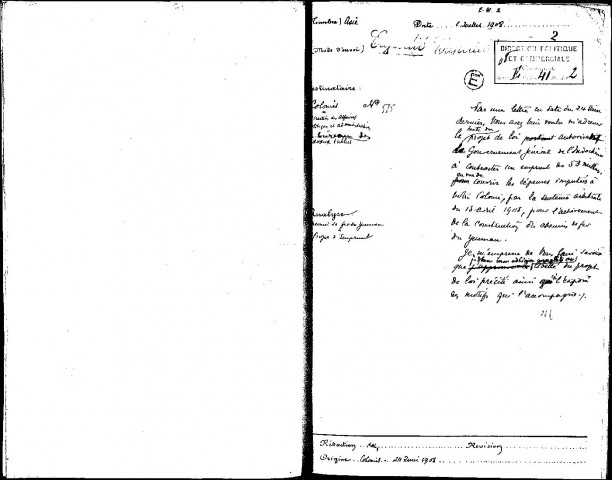 E.H.2
(Timbre) Asie Date Juillet 1908
2
DIRECTION POLITIQUE
ET COMMERCIALE
E 41 2
E
Destinataire:
Colonies N° 535
Par une lettre en date du 24 Juin
dernier, Vous avez bien voulu m'adresser
le texte du projet de loi portant autorisant
le Gouvernement Général de l'Indochine
à contracter un emprunt de 53 millions
pour couvrir les dépenses imputées à
cette Colonie, par la sentence arbitrale
du 13 avril 1908, pour l'achèvement
de la construction du chemin de fer
du Yunnan.
Analyse
Chemin de fer du Yunnan
Projet d'Emprunt
Je m'empresse de Vous faire savoir
que j'approuve le texte du projet
de loi précité ainsi que l'exposé
des motifs qui l'accompagne.
Rédaction Revision
Origine Colonies - 24 Juin 1908